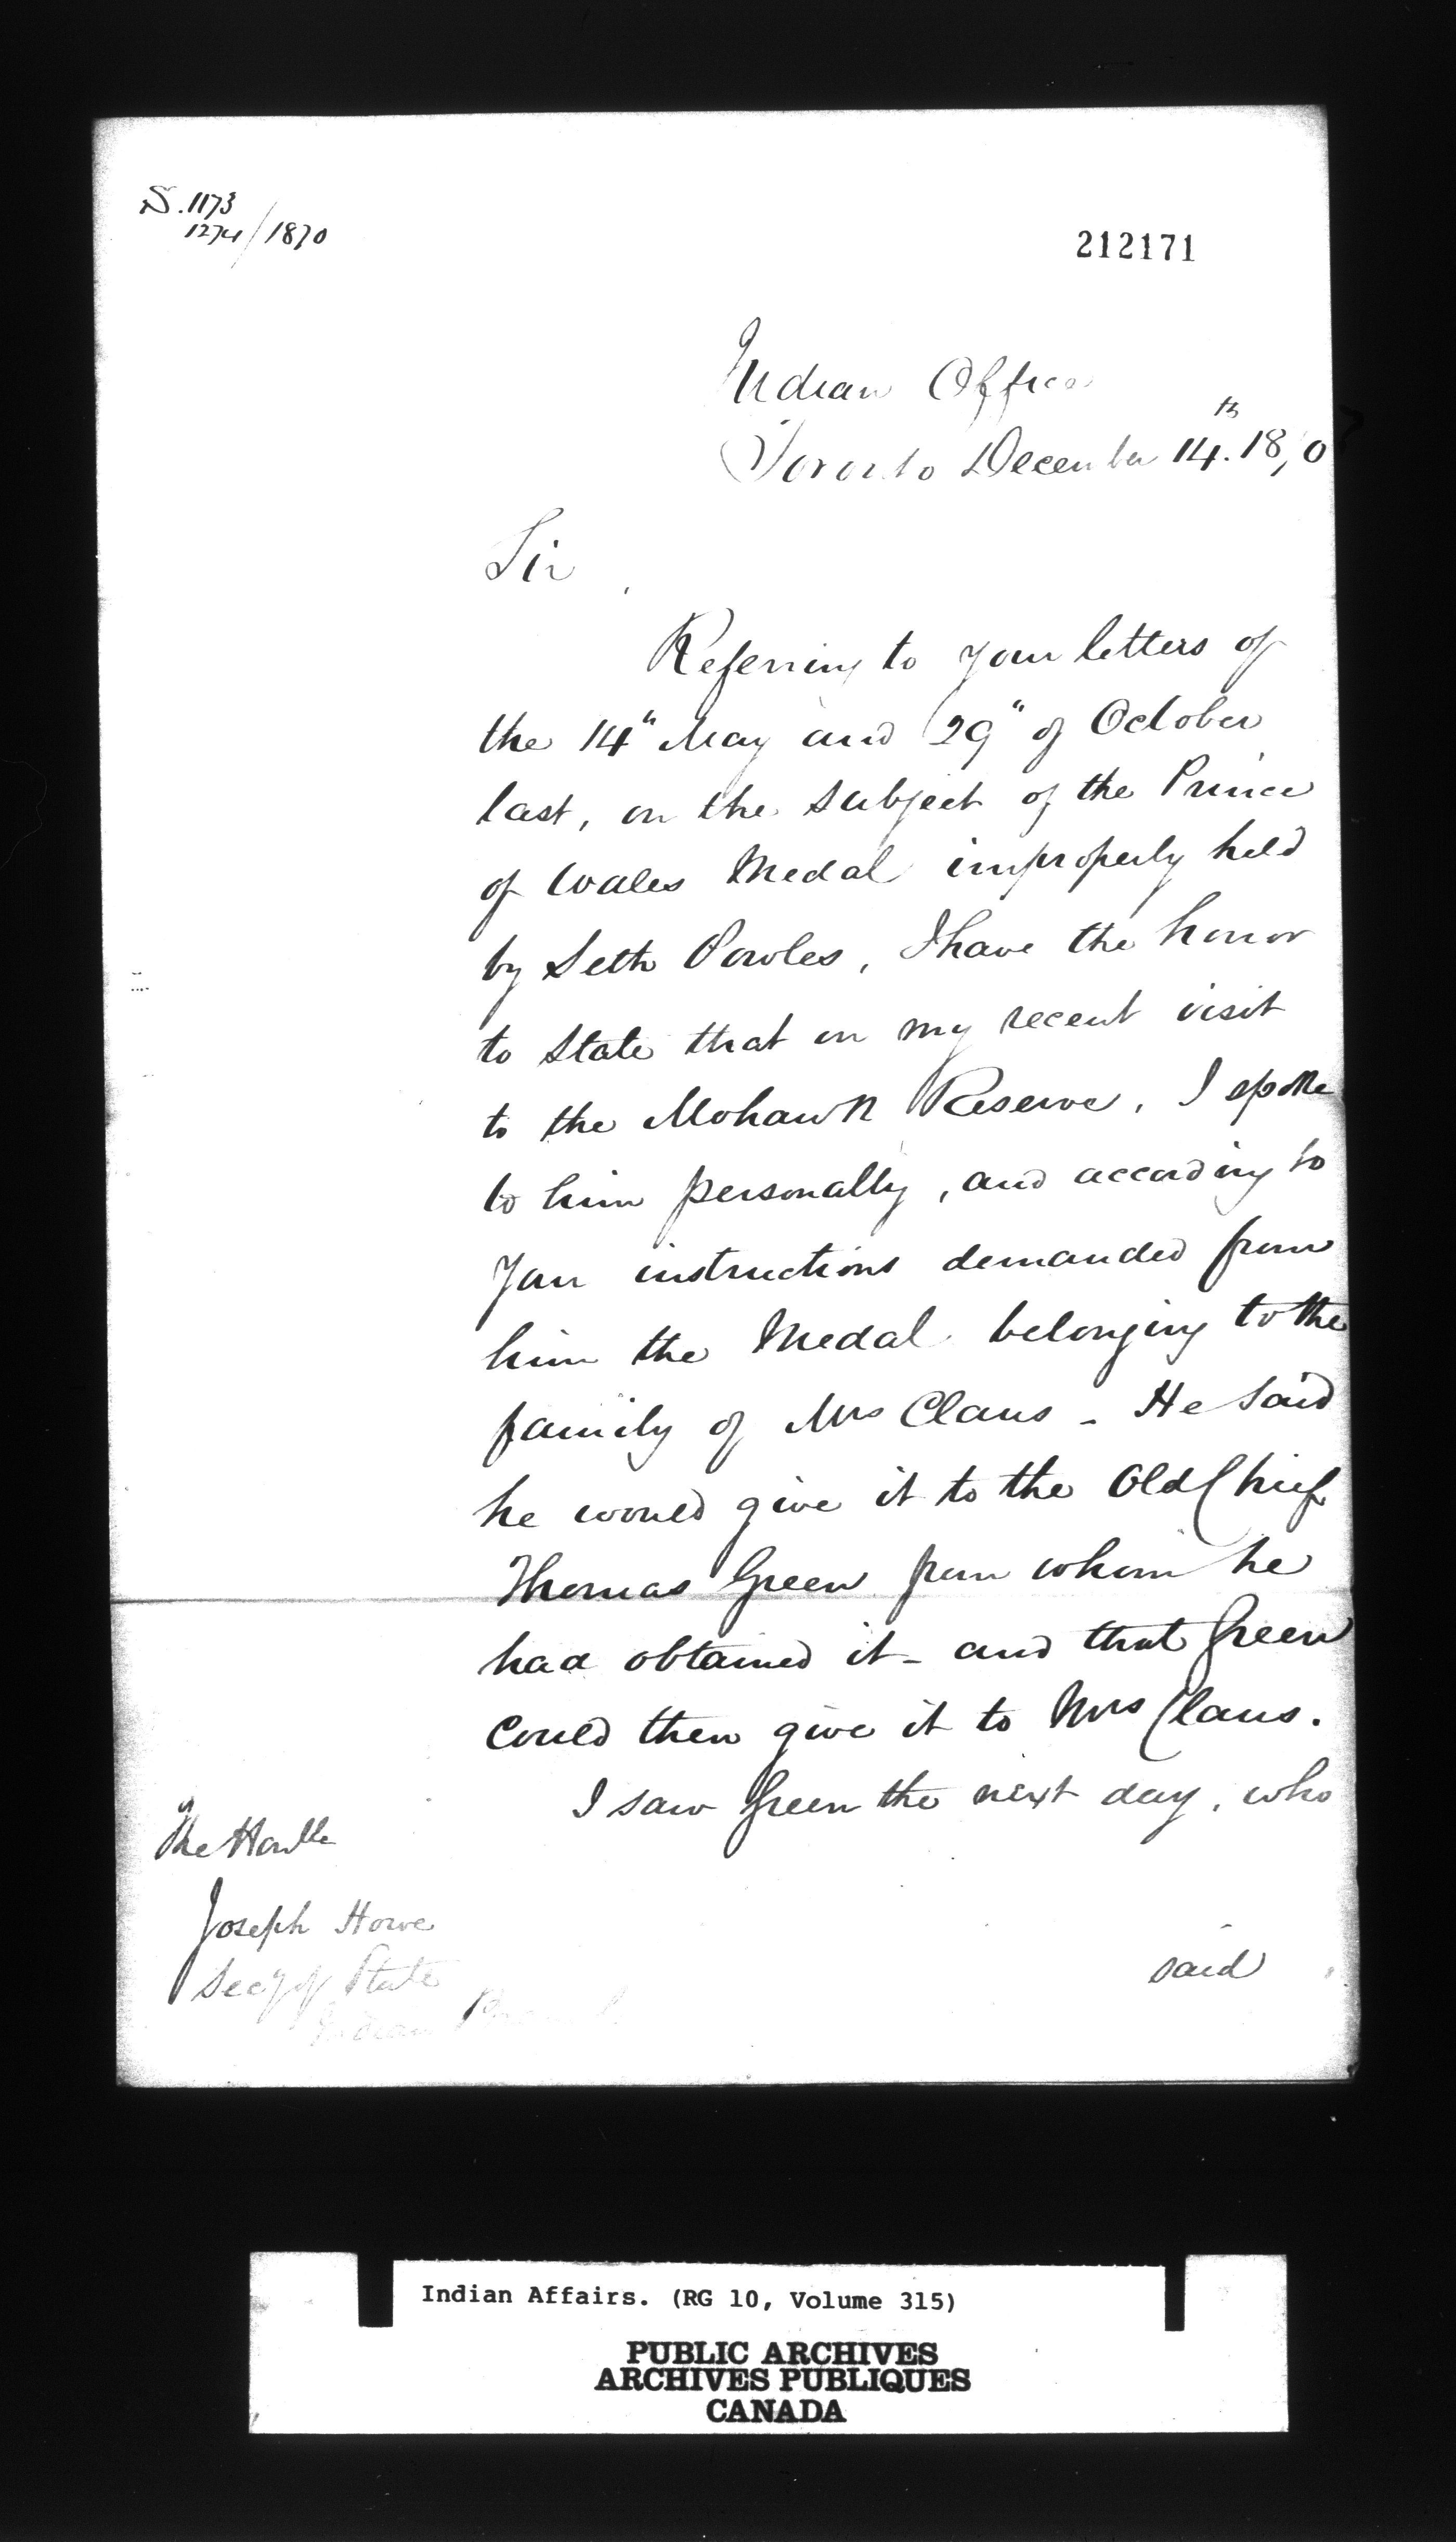 S. 1173
1274/1870
212171
Indian Office
Toronto December 14th. 1870
Sir,
Referring to your letters of
the 14" May and 29" of October
last, on the subject of the Prince
of Wales Medal improperly held
by Seth Powles, I have the honor
to state that on my recent visit
to the Mohawk Reserve, I spoke
to him personally, and according to
your instructions demanded from
him the Medal belonging to the
family of Mrs Claus - He said
he would give it to the Old Chief
Thomas Green from whom he
had obtained it - and that Green
could then give it to Mrs Claus.
I saw Green the next day, who
said
The Honble
Joseph Howe
Secy of State
Indian Branch
Indian Affairs. (RG 10, Volume 315)
PUBLIC ARCHIVES
ARCHIVES PUBLIQUES
CANADA